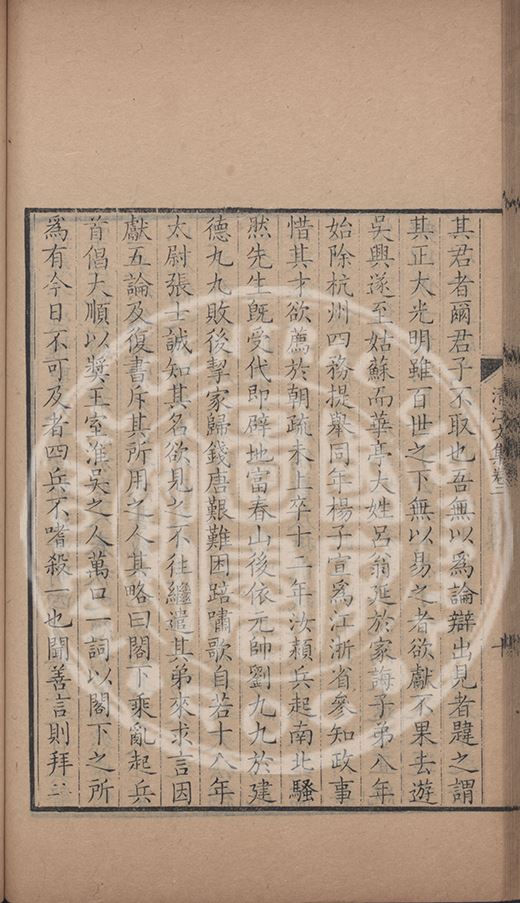 其君者爾君子不取也吾無以爲論辯出見者韙之謂
其正大光明雖百世之下無以易之者欲獻不果去遊
吳興遂至姑蘇而華亭大姓呂翁延於家誨子弟八年
始除杭州四務提舉同年楊子宣爲江浙省參知政事
惜其才欲薦於朝疏未上卒十二年汝頴兵起南北騷
然先生旣受代即辟地富春山後依元帥劉九九於建
德九九敗後挈家歸錢唐艱難困踣嘯歌自若十八年
太尉張士誠知其名欲見之不往繼遣其弟來求言因
獻五論及復書斥其所用之人其略曰閣下乘亂起兵
首倡大順以獎王室淮吳之人萬口一詞以閣下之所
爲有今日不可及者四兵不嗜殺一也聞善言則拜二
清江文集卷二